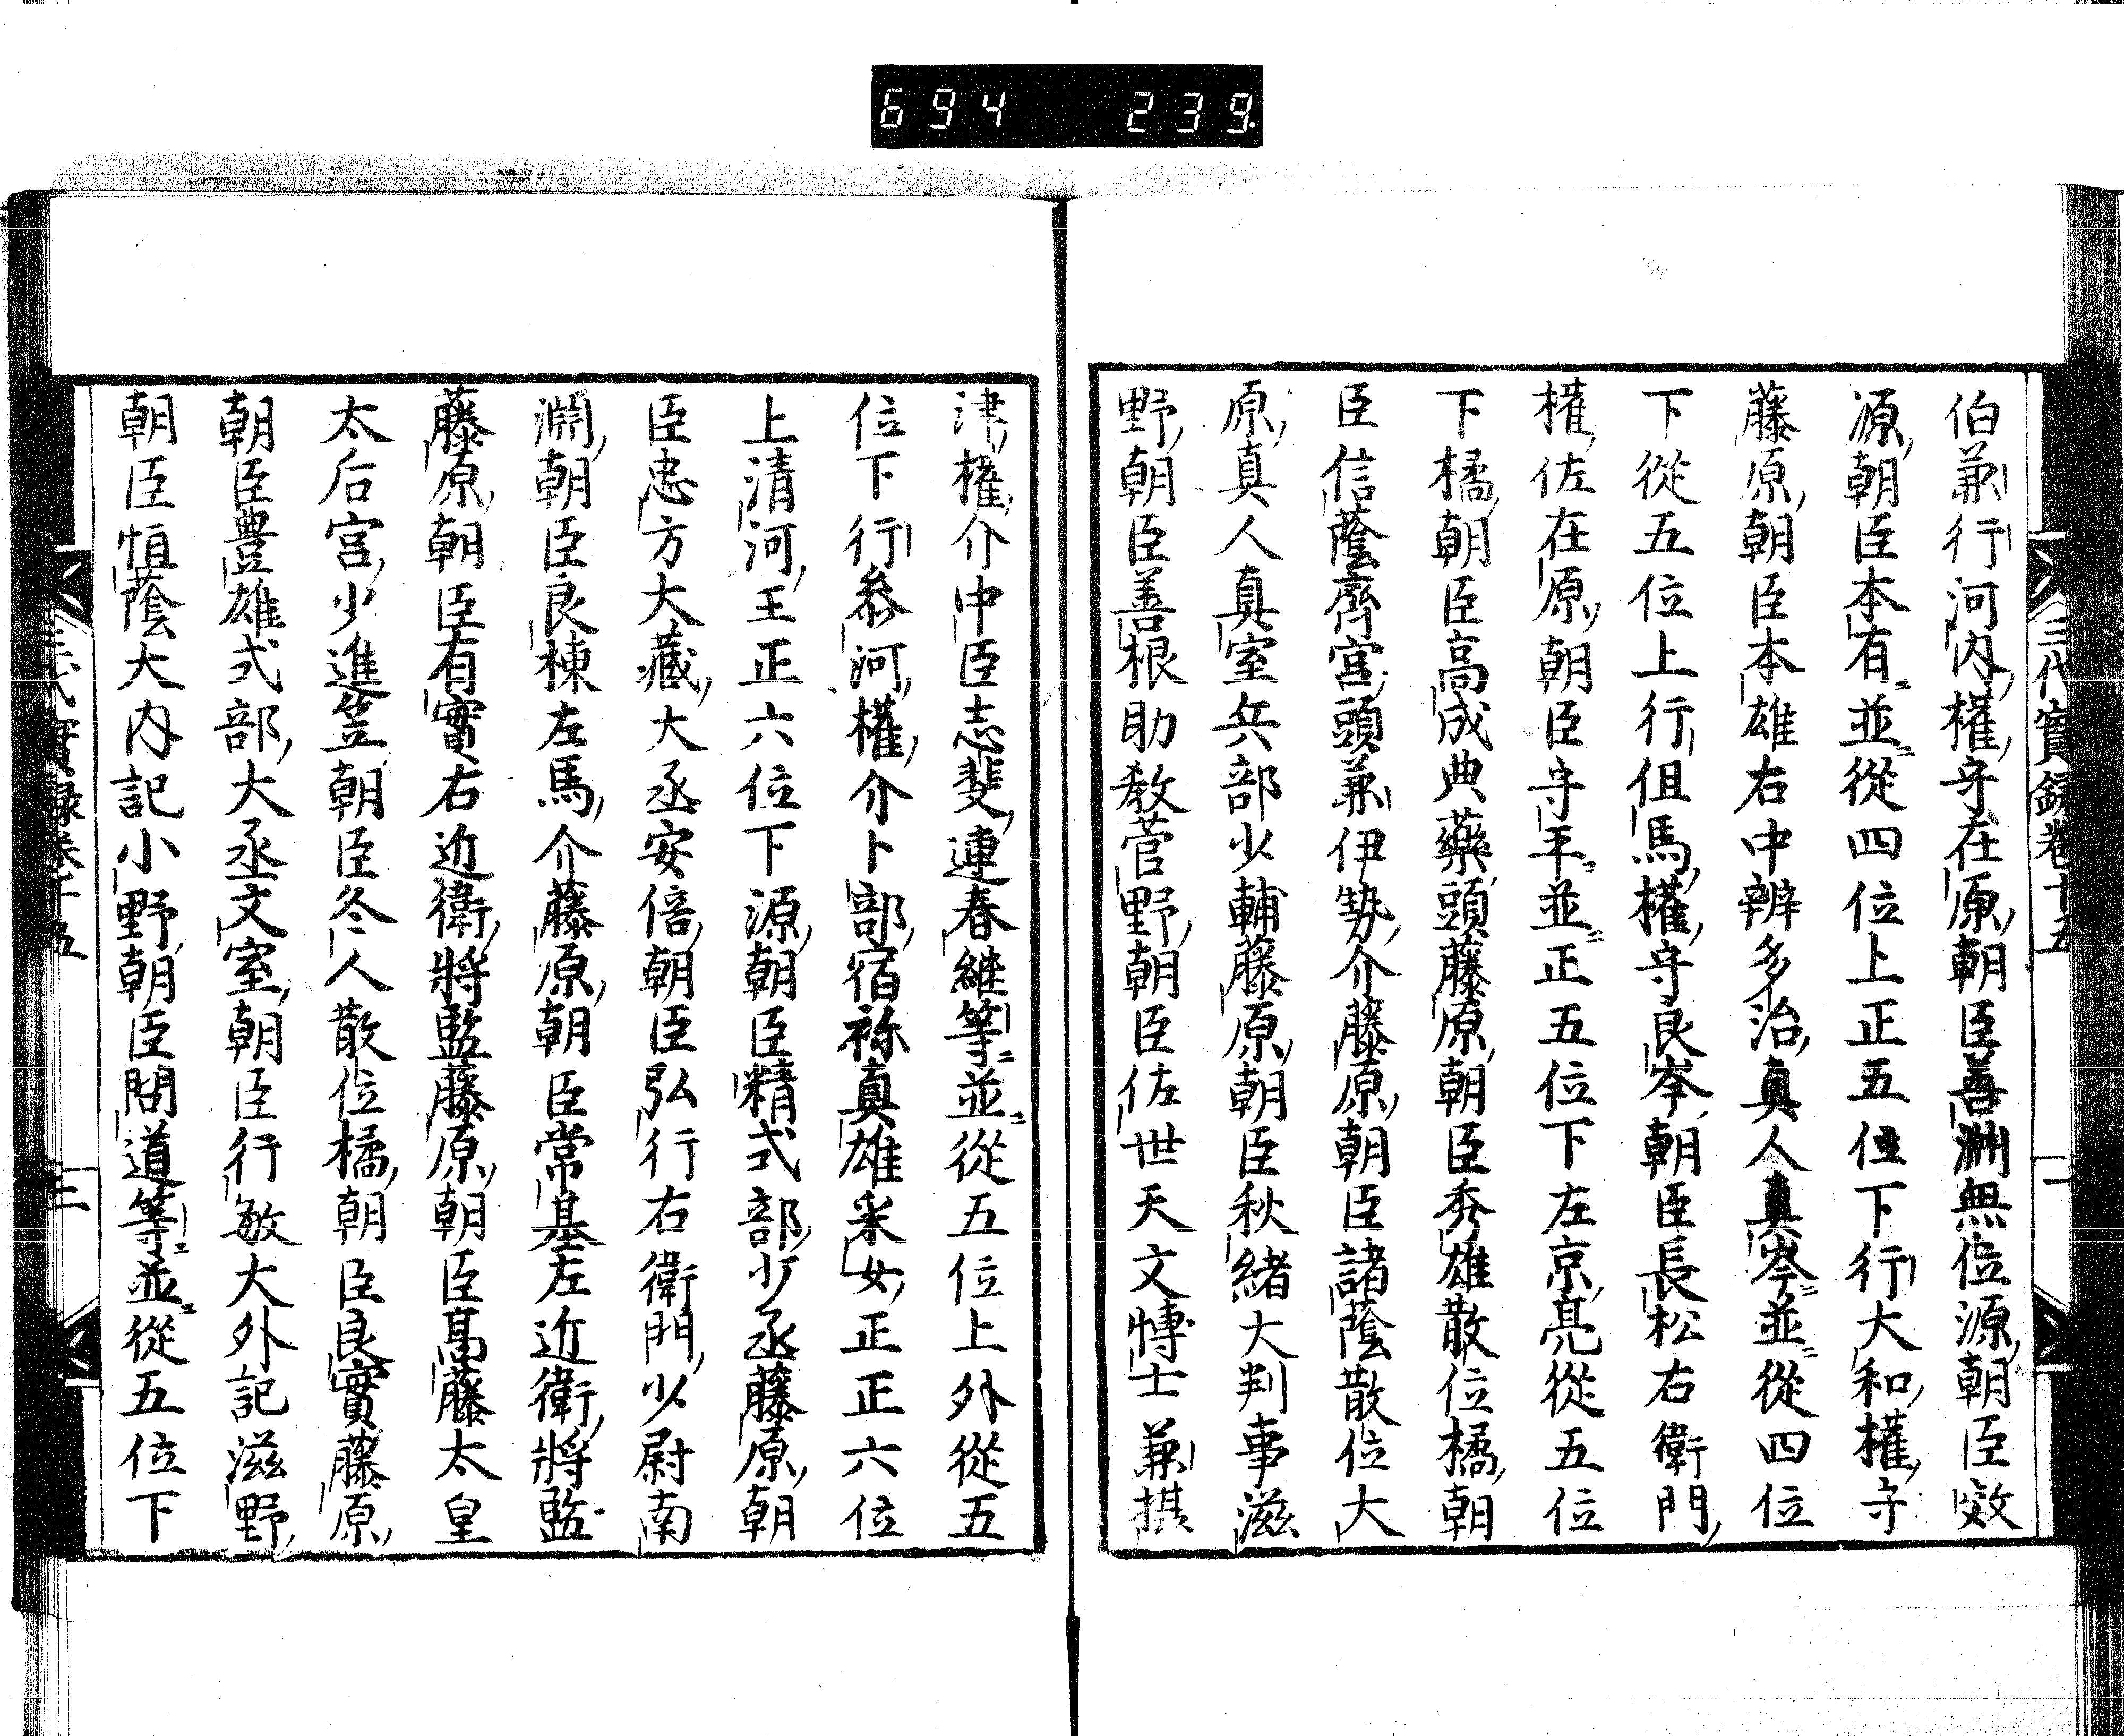 694 239
三代實録卷十五 二
伯兼行河內權守在原朝臣善淵無位源朝臣效
源朝臣本有並從四位上正五位下行大和權守
藤原朝臣本雄右中辨多治真人真岑並從四位
下從五位上行伹馬權守良岑朝臣長松右衛門
權佐在原朝臣守平並正五位下左京亮從五位
下橘朝臣高成典藥頭藤原朝臣秀雄散位橘朝
臣信蔭齊宮頭兼伊勢介藤原朝臣諸蔭散位大
原真人真室兵部少輔藤原朝臣秋緒大判事滋
野朝臣善根助教菅野朝臣佐世天文博士兼摂
津權介中臣志斐連春継等並從五位上外從五
位下行叅河權介卜部宿祢真雄采女正正六位
上清河王正六位下源朝臣精式部少丞藤原朝
臣忠方大藏大丞安倍朝臣弘行右衛門少尉南
淵朝臣良棟左馬介藤原朝臣常基左近衛將監
藤原朝臣有實右近衛將監藤原朝臣高藤太皇
太后宮少進笠朝臣冬人散位橘朝臣良實藤原
朝臣豊雄式部大丞文室朝臣行敏大外記滋野
朝臣恒蔭大內記小野朝臣問道等並從五位下
三代實録卷十五 三